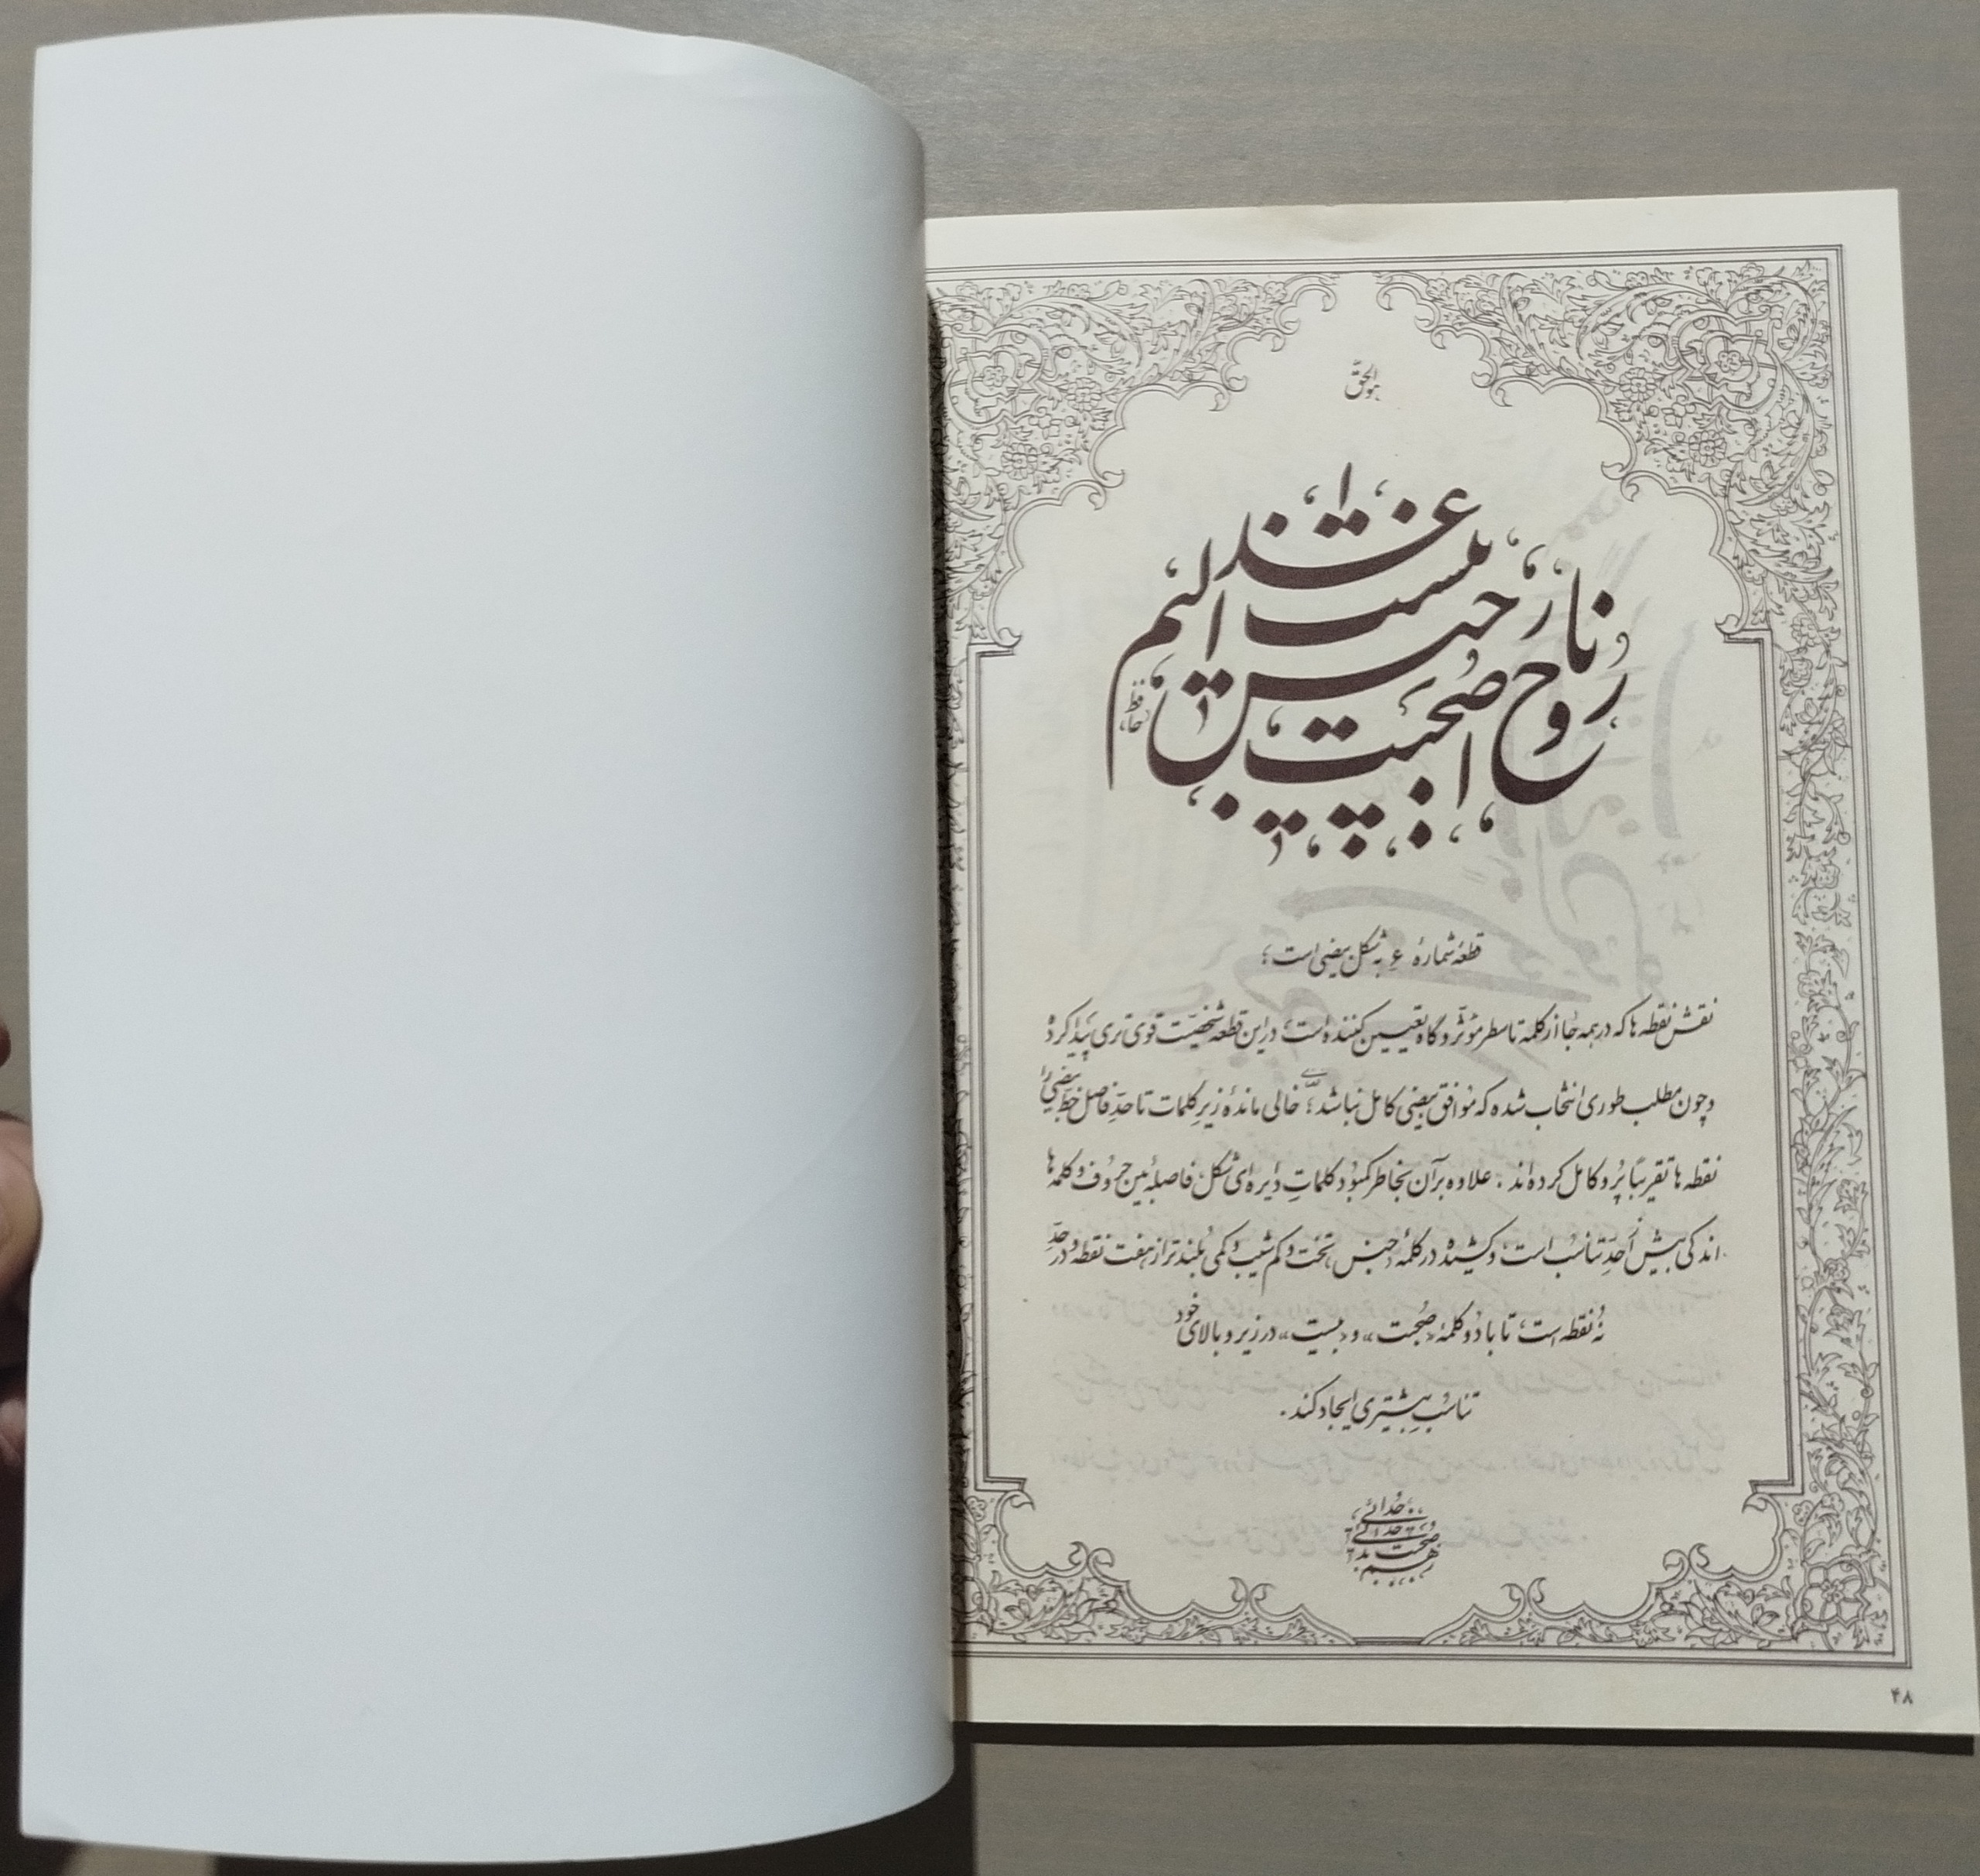 هوالحق
روح را صحبت ناجنس عذابیست الیم
حافظ
قطعهٔ شمارهٔ ۶ به شکل بیضی است؛
نقش نقطه ها که در همه جا از کلمه تا سطر مؤثّر و گاه تعیین کننده است، در این قطعه شخصیّت قوی تری پیدا کرده
و چون مطلب طوری انتخاب شده که موافق بیضیِ کامل نباشد؛ خالی ماندهٔ زیرِ کلمات تا حدّ فاصل خطّ بیضی را
نقطه ها تقریباً پُر و کامل کرده اند. علاوه بر آن بخاطر کمبود کلماتِ دایره ای شکل، فاصلهٔ بین حروف و کلمه ها
اندکی بیش از حدّ تناسُب است، و کشیده در کلمهٔ «جنس» تخت و کم شیب و کمی بُلندتر از هفت نقطه و در حدِّ
نُه نقطه است، تا با دو کلمهٔ «صُحبت» و «بیست» در زیر و بالای خود
تناسُبِ بیشتری ایجاد کند.
۴۸